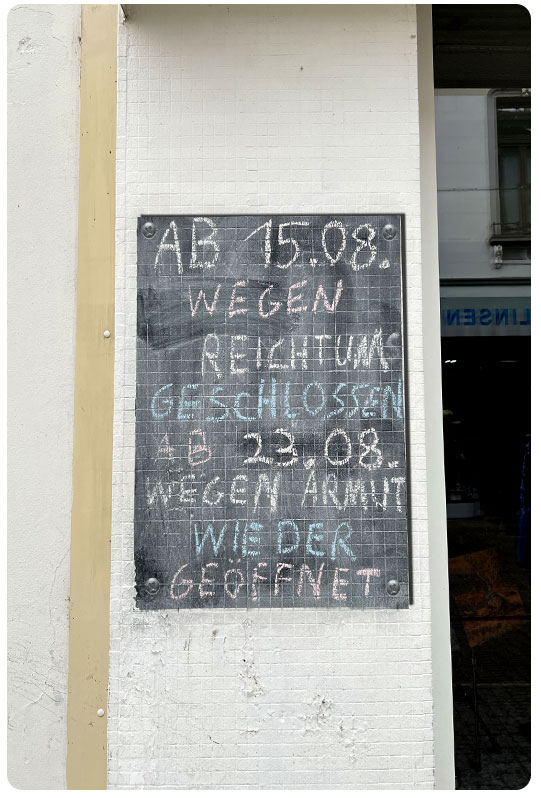 AB 15.08.
WEGEN
REICHTUMS
GESCHLOSSEN
AB 23.08.
WEGEN ÄRMUT
WIEDER
GEÖFFNET
LINSEN